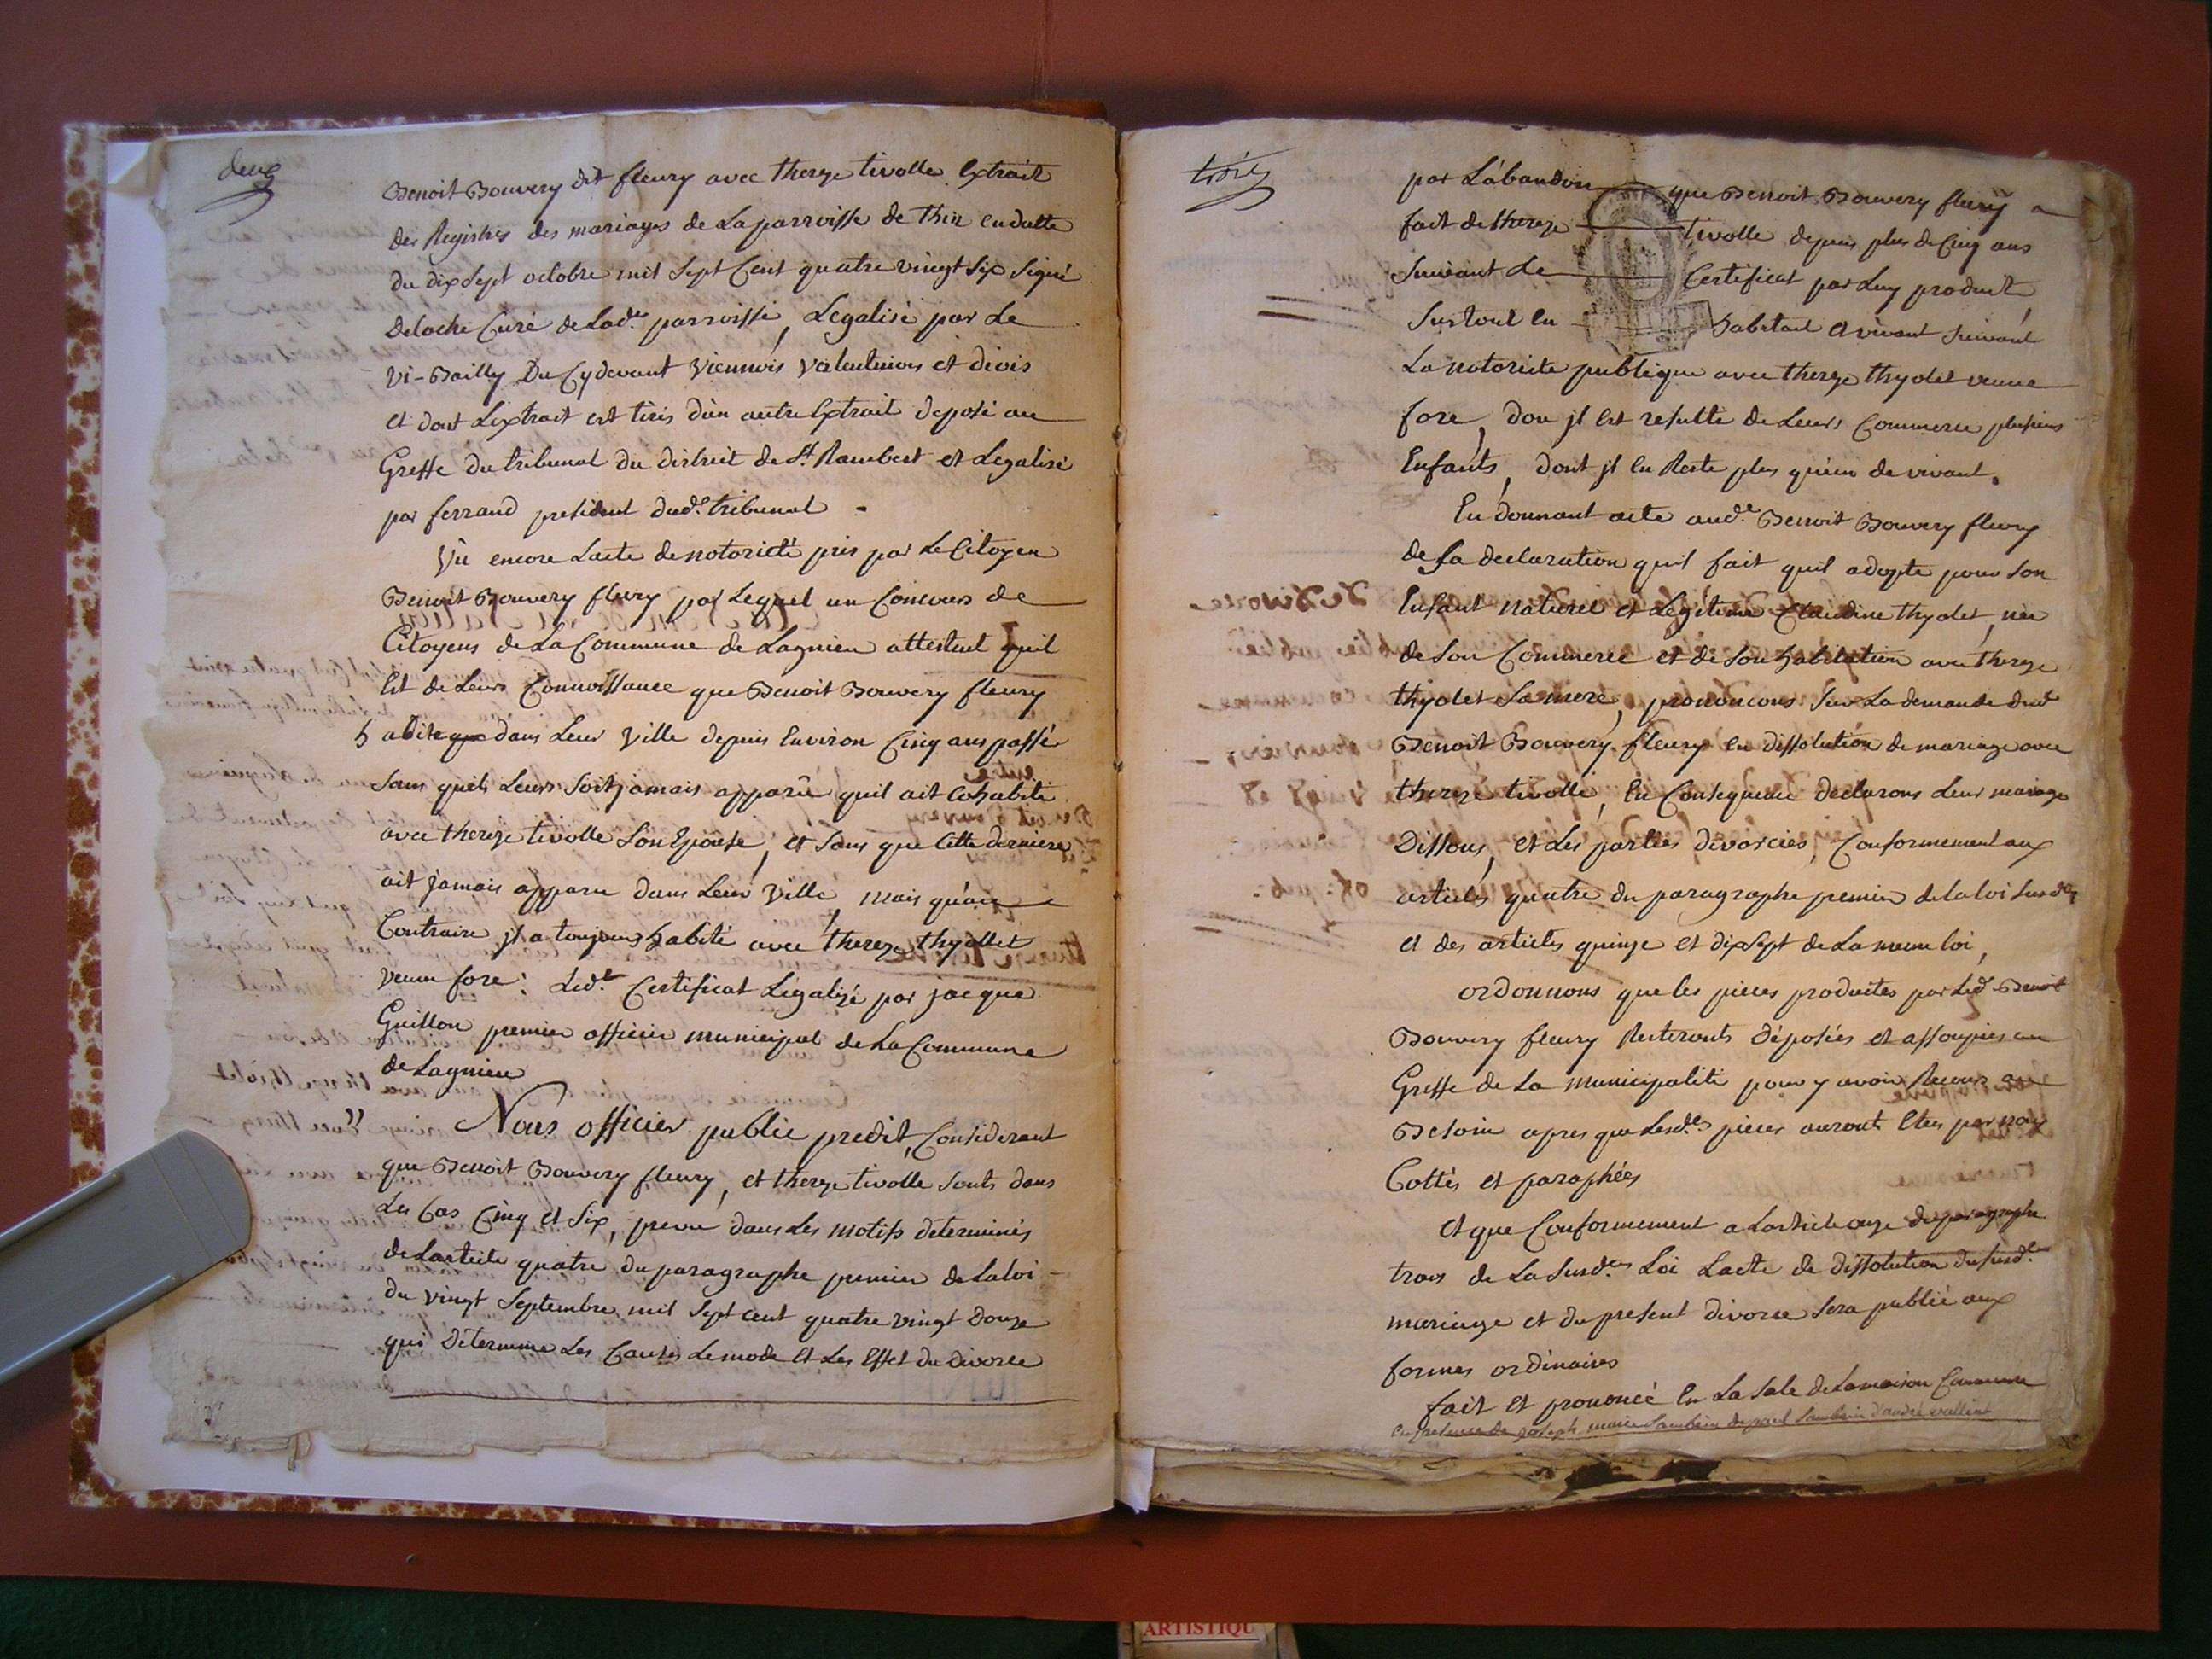 deux
Benoit Bouvery dit fleury avec thereze tivolle Extrait
des Registres des mariages de La parroisse de thin en datte
du dix Sept octobre mil Sept Cent quatre vingt Six Signé
Deloche Curé de Lad.e parroisse, Legalisé par Le
Vi-Bailly Du Cydevant Viennois Valentinois et diois
et dont Lextrait est tirés d'un autre Extrait deposé au
Greffe du tribunal du district de St. Rambert et Legalisé
par ferrand president dud.t tribunal
Vû encore Lacte de notorieté pris par Le Citoyen
Benoit Bouvery fleury par Lequel un Concours de
Citoyens de La Commune de Lagnieu attestent quil
Est de Leurs Connoissance que Benoit Bouvery fleury
habite dans Leur Ville depuis Environ Cinq ans passé
Sans quels Leurs Soit jamais apparû quil ait Cohabité
avec thereze tivolle Son Epouse, et Sans que Cette derniere
ait jamais apparu dans Leur Ville, mais qu'au
Contraire jl a toujours habité avec thereze thyollet
veuve fore : Led.t Certificat Légalizé par jacque
Guillon premier officier municipal de La Commune
de Lagnieu
Nous officier public predit, Considerant
que Benoit Bouvery fleury, et thereze tivolle Sonts dans
Les Cas Cinq et Six, prevu dans Les motifs determinés
de Larticle quatre du paragraphe premier de La loi
du vingt Septembre mil Sept cent quatre vingt Douze
qui Détermine Les Causes Le mode et Les Effet du divorce
trois
par L'abandon que Benoit Bouvery fleury a
fait de thereze tivolle depuis plus de Cinq ans
Suivant Le Certificat par Luy produit,
Surtout En habitant et vivant Suivant
La notorieté publique avec thereze thyolet veuve
fore, dou jl Est resulté de Leurs Commerce plusieurs
Enfants, dont jl En Reste plus qu'un de vivant.
En donnant acte aud.t Benoit Bouvery fleury
de Sa declaration quil fait quil adopte pour Son
Enfant naturel et Legitime Claudine thyolet, née
de Son Commerce et de Son habitation avec thereze
thyolet Sa mere, prononcons Sur La demande dud.t
Benoit Bouvery fleury en dissolution de mariage avec
thereze tivolle, En Consequence declarons Leur mariage
Dissous, et Les parties divorciés, Conformement aux
articles quatre du paragraphe premier de La loi Susd.e
et des articles quinze et dix Sept de La meme loi,
ordonnons que les pieces produites par Led.t Benoit
Bouvery fleury Resteronts déposées et assoupies au
Greffe de La municipalité pour y avoir Recours au
Besoin apres que Lesd.es pieces auronts Etées par nous
Cottés et paraphées
Et que Conformement a Larticle onze du paragraphe
trois de La Susd.e Loi Lacte de dissolution du Susd.t
mariage et du present divorce Sera publié aux
formes ordinaires
fait et prononcé En La Sale de La maison Commune
En presence de joseph marie
ARTISTIQU